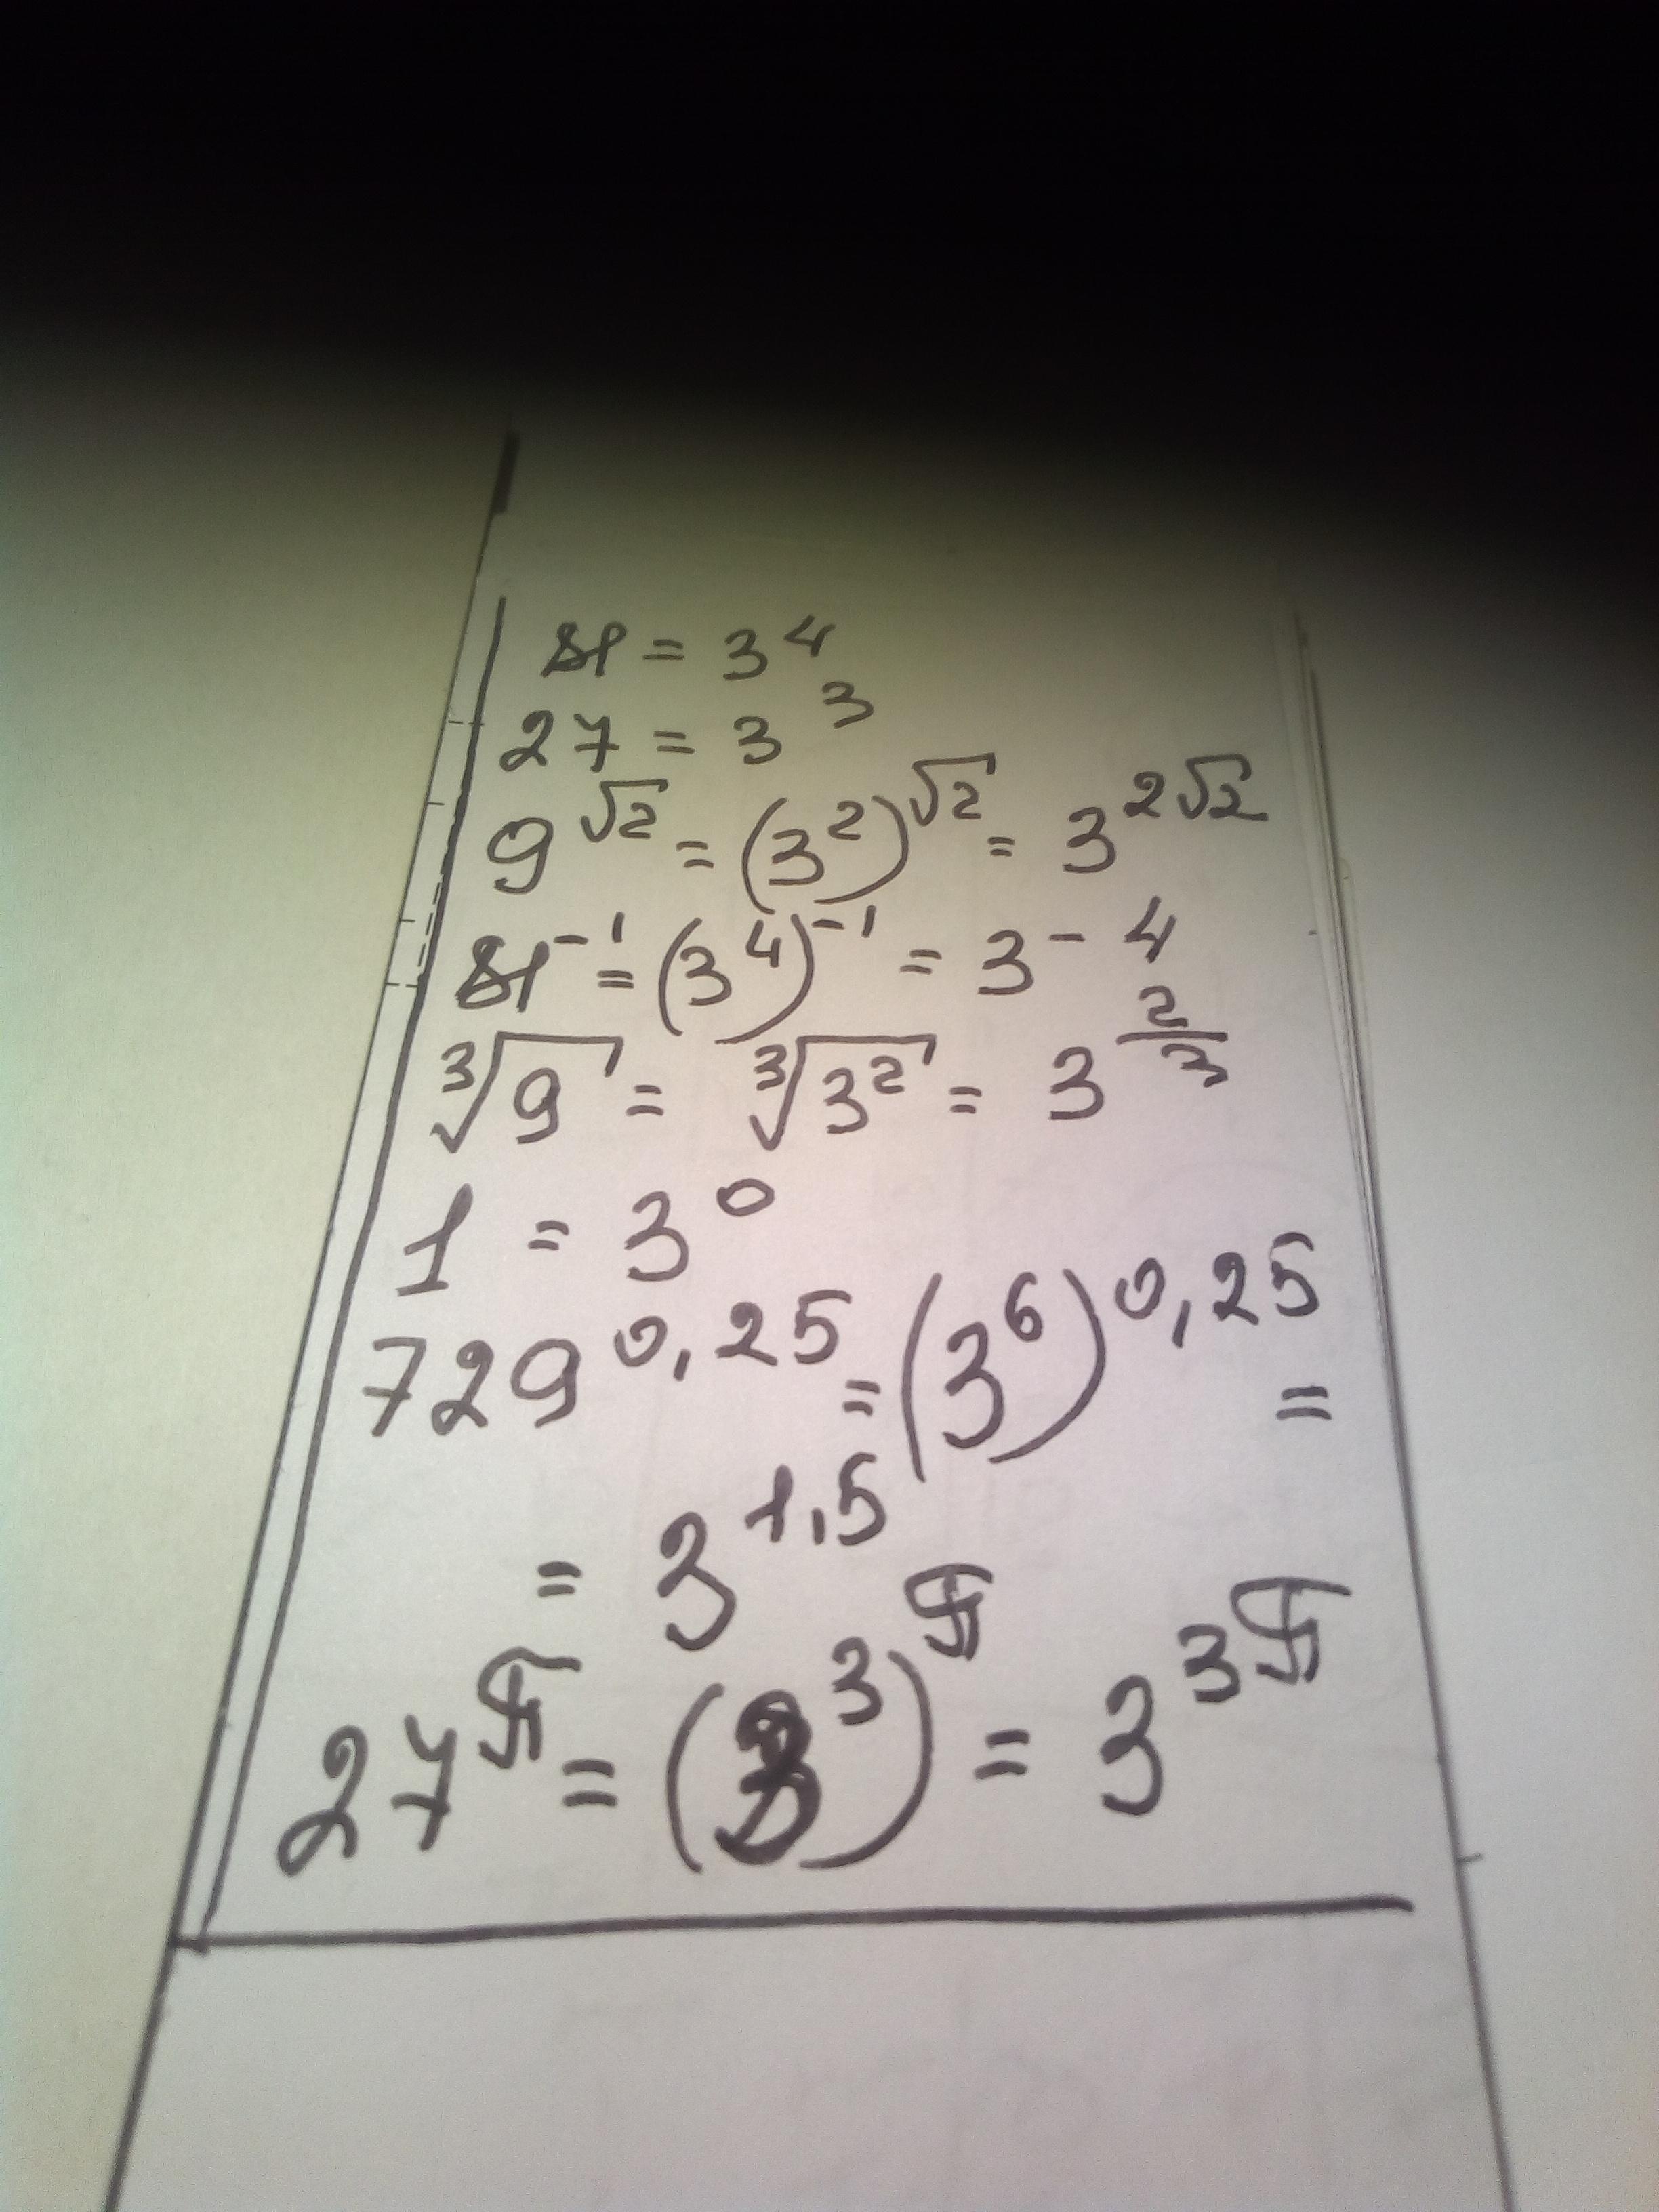 81 = 3⁴
27 = 3³
9^√2 = (3²)^√2 = 3^2√2
81⁻¹ = (3⁴)⁻¹ = 3⁻⁴
∛9 = ∛3² = 3^2/3
1 = 3⁰
729^0,25 = (3⁶)^0,25 =
= 3^1,5
27^π = (3³)^π = 3^3π